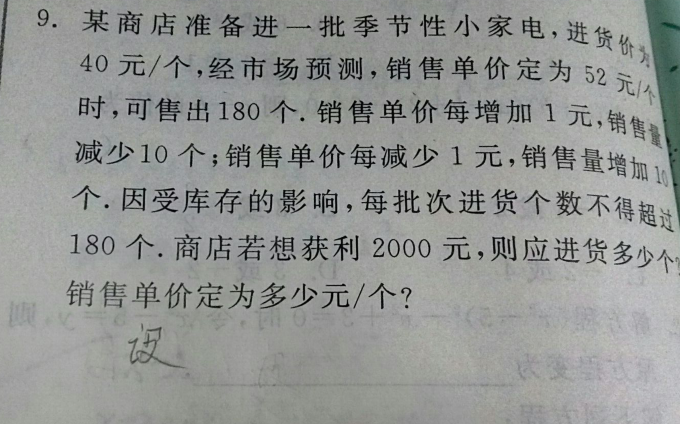 9. 某商店准备进一批季节性小家电,进货价为
40 元/个,经市场预测,销售单价定为 52 元/个
时,可售出180 个. 销售单价每增加 1 元,销售量
减少10 个;销售单价每减少 1 元,销售量增加10
个. 因受库存的影响,每批次进货个数不得超过
180 个. 商店若想获利 2000 元,则应进货多少个?
销售单价定为多少元/个?
设